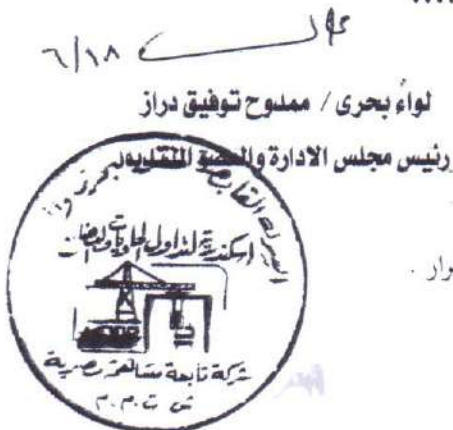 ٦/١٨
لواء بحرى / ممدوح توفيق دراز
رئيس مجلس الادارة والعضو المنتدب
الشركة القابضة للنقل البحرى و
اسكندرية لتداول الحاويات والبضائع
شركة تابعة مساهمة مصرية
ش.ت.م.م